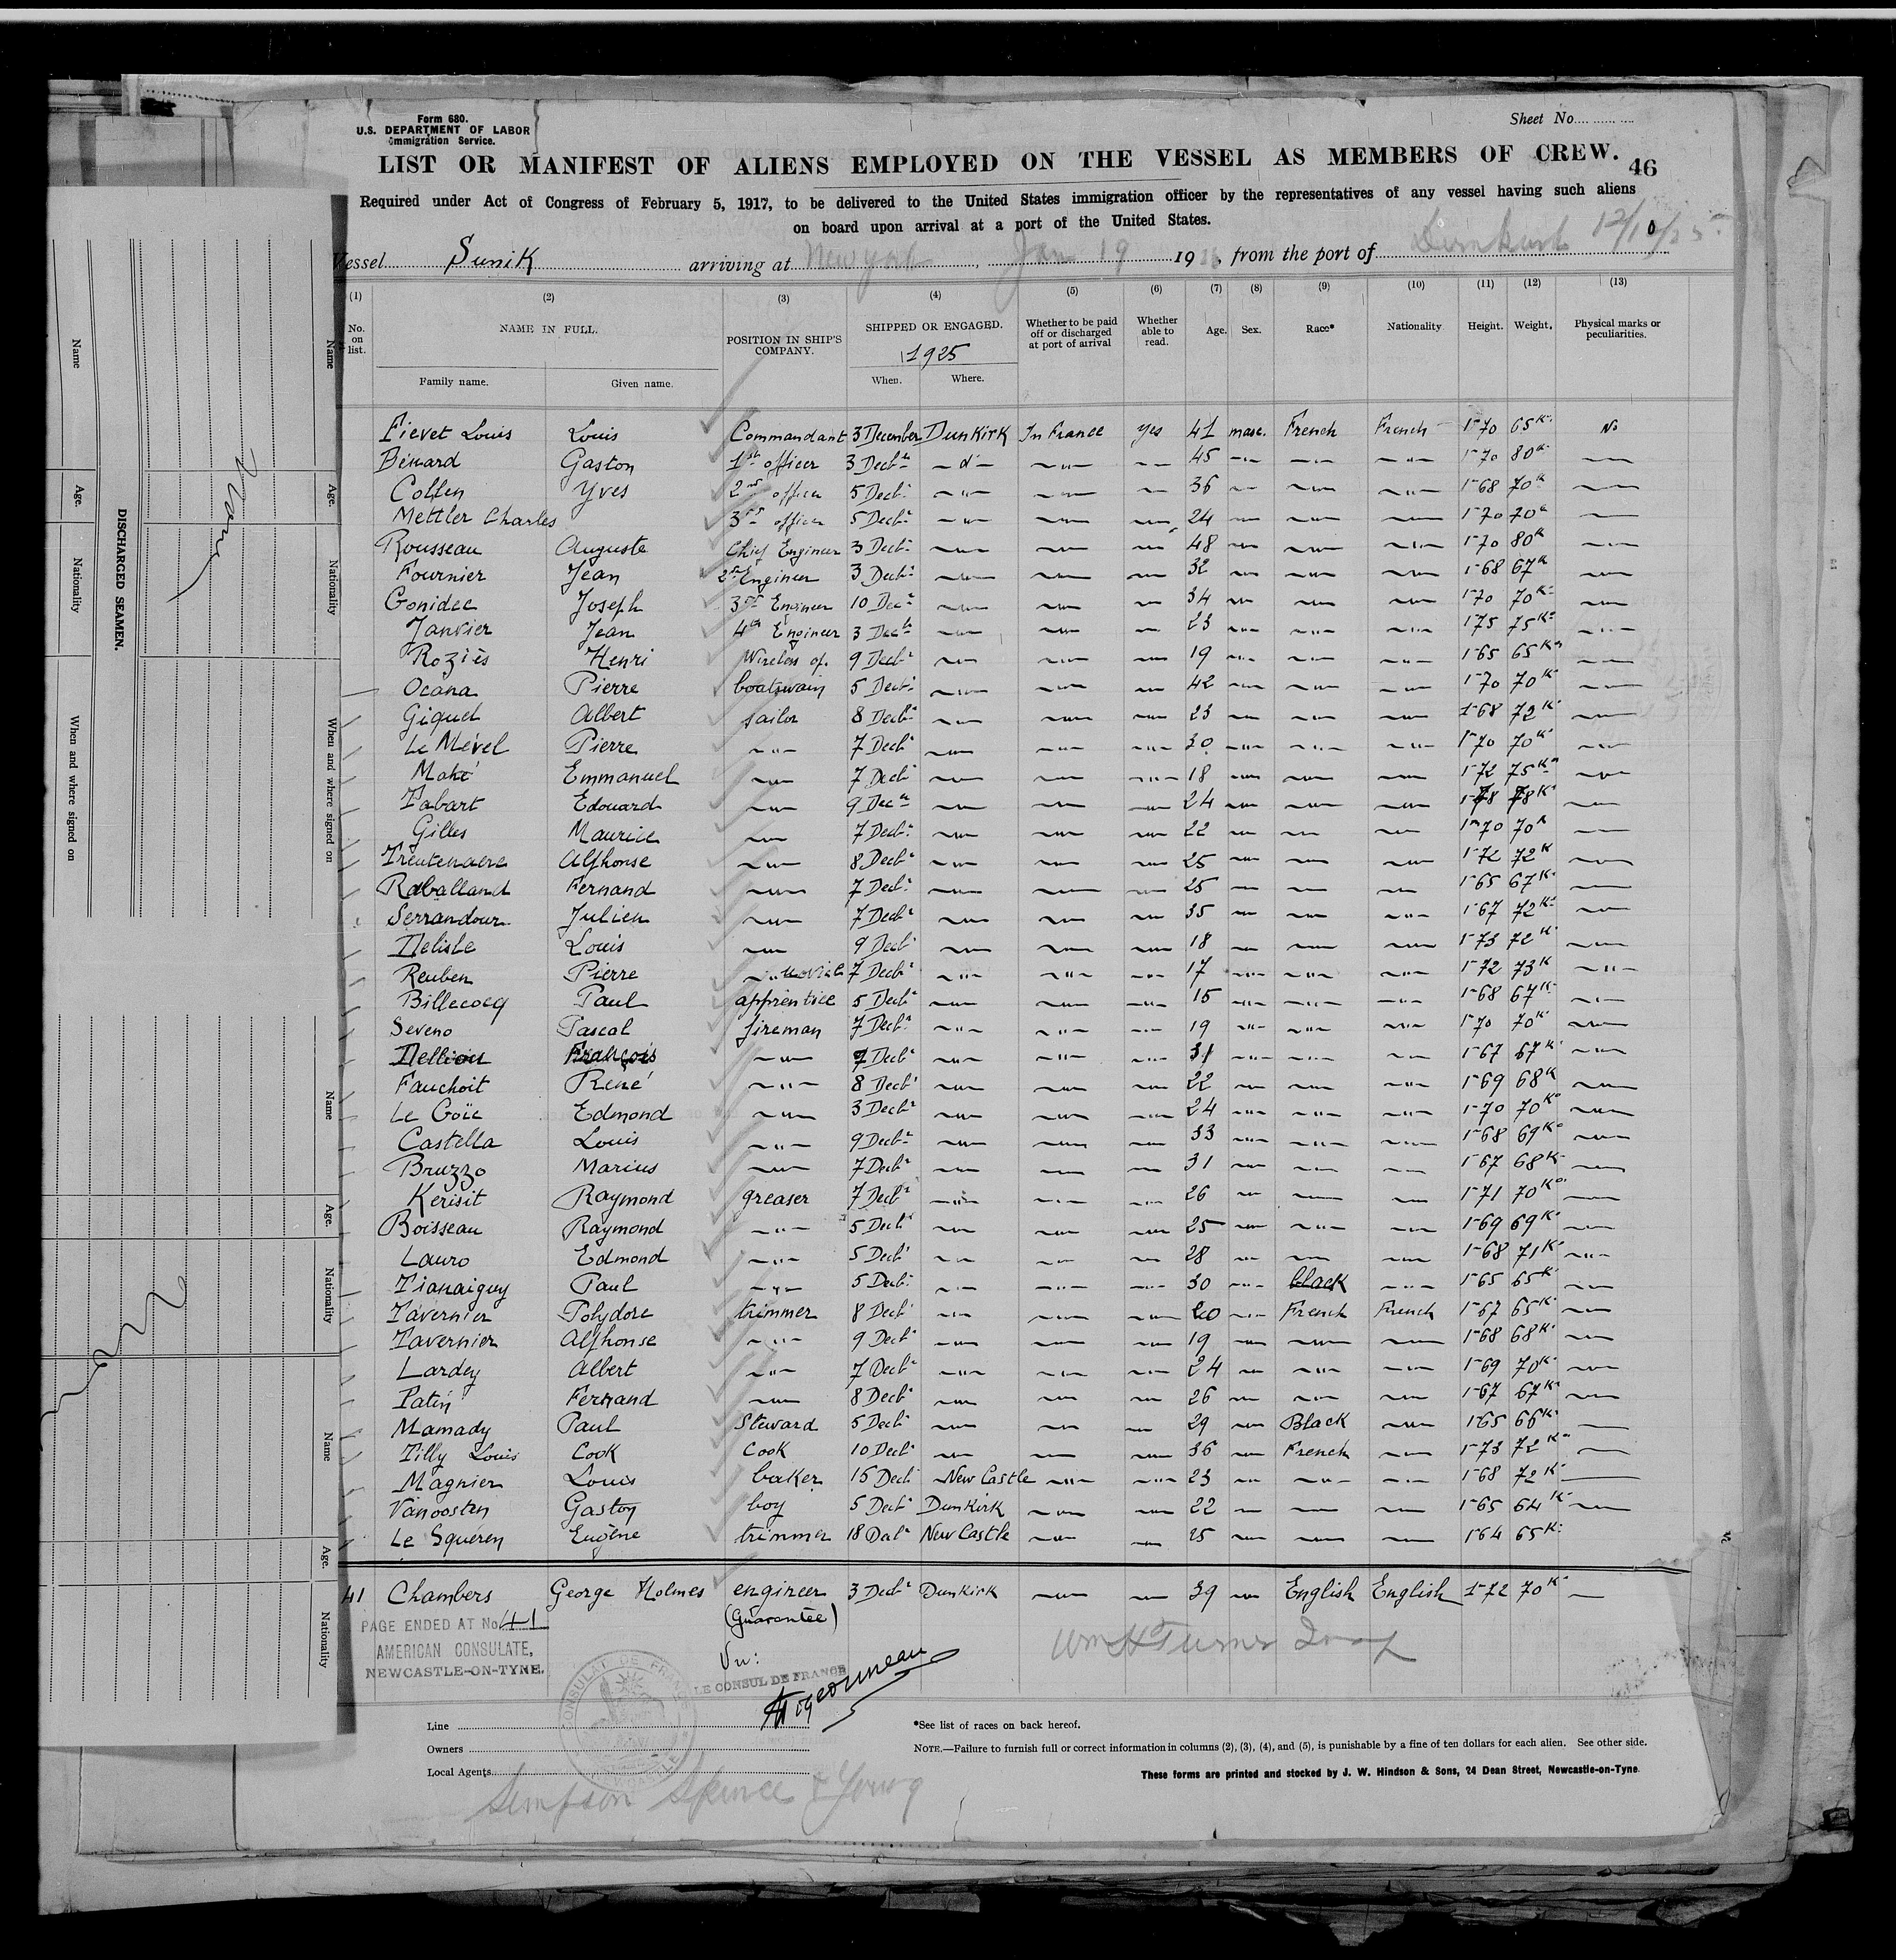 Form 680.
U.S. DEPARTMENT OF LABOR
Immigration Service.
Sheet No.
LIST OR MANIFEST OF ALIENS EMPLOYED ON THE VESSEL AS MEMBERS OF CREW.
46
Required under Act of Congress of February 5, 1917, to be delivered to the United States immigration officer by the representatives of any vessel having such aliens
on board upon arrival at a port of the United States.
Vessel Sunik arriving at New York Jan 19 19 , from the port of Dunkirk 12/10/25
(1) (2) (3) (4) (5) (6) (7) (8) (9) (10) (11) (12) (13)
No. on list. NAME IN FULL. POSITION IN SHIP'S COMPANY. SHIPPED OR ENGAGED. 1925 Whether to be paid off or discharged at port of arrival Whether able to read. Age. Sex. Race* Nationality Height. Weight. Physical marks or peculiarities.
Family name. Given name. When. Where.
Fievet Louis Louis Commandant 3 December Dunkirk In France yes 41 masc. French French 1-70 65 K. No
Bénard Gaston 1st officer 3 Decbr - d° - -"- -"- 45 -"- -"- -"- 1-70 80 K -"-
Collen Yves 2nd officer 5 Decbr -"- -"- -"- 36 -"- -"- -"- 1-68 70 K -"-
Mettler Charles 3rd officer 5 Decbr -"- -"- -"- 24 -"- -"- -"- 1-70 70 K -"-
Rousseau Auguste Chief Engineer 3 Decbr -"- -"- -"- 48 -"- -"- -"- 1-70 80 K -"-
Fournier Jean 2nd Engineer 3 Decbr -"- -"- -"- 32 -"- -"- -"- 1-68 67 K -"-
Gonidec Joseph 3rd Engineer 10 Decr -"- -"- -"- 34 -"- -"- -"- 1-70 70 K -"-
Janvier Jean 4th Engineer 3 Decbr -"- -"- -"- 23 -"- -"- -"- 1-75 75 K -"-
Roziès Henri Wireless op. 9 Decbr -"- -"- -"- 19 -"- -"- -"- 1-65 65 K -"-
Ocana Pierre boatswain 5 Decbr -"- -"- -"- 42 -"- -"- -"- 1-70 70 K -"-
Giquel Albert sailor 8 Decbr -"- -"- -"- 23 -"- -"- -"- 1-68 72 K -"-
Le Mével Pierre -"- 7 Decbr -"- -"- -"- 30 -"- -"- -"- 1-70 70 K -"-
Mahé Emmanuel -"- 7 Decbr -"- -"- -"- 18 -"- -"- -"- 1-72 75 K -"-
Tabart Edouard -"- 9 Decbr -"- -"- -"- 24 -"- -"- -"- 1-78 78 K -"-
Gilles Maurice -"- 7 Decbr -"- -"- -"- 22 -"- -"- -"- 1-70 70 K -"-
Treutenaere Alphonse -"- 8 Decbr -"- -"- -"- 25 -"- -"- -"- 1-72 72 K -"-
Raballand Fernand -"- 7 Decbr -"- -"- -"- 25 -"- -"- -"- 1-65 67 K -"-
Serrandour Julien -"- 7 Decbr -"- -"- -"- 35 -"- -"- -"- 1-67 72 K -"-
Delisle Louis -"- 9 Decbr -"- -"- -"- 18 -"- -"- -"- 1-73 72 K -"-
Reuben Pierre -"- novice 7 Decbr -"- -"- -"- 17 -"- -"- -"- 1-72 73 K -"-
Billecocq Paul apprentice 5 Decbr -"- -"- -"- 15 -"- -"- -"- 1-68 67 K -"-
Seveno Pascal fireman 7 Decbr -"- -"- -"- 19 -"- -"- -"- 1-70 70 K -"-
Dellion François -"- 7 Decbr -"- -"- -"- 31 -"- -"- -"- 1-67 67 K -"-
Fauchoit René -"- 8 Decbr -"- -"- -"- 22 -"- -"- -"- 1-69 68 K -"-
Le Goïc Edmond -"- 3 Decbr -"- -"- -"- 24 -"- -"- -"- 1-70 70 K -"-
Castella Louis -"- 9 Decbr -"- -"- -"- 33 -"- -"- -"- 1-68 69 K -"-
Bruzzo Marius -"- 7 Decbr -"- -"- -"- 31 -"- -"- -"- 1-67 68 K -"-
Kerisit Raymond greaser 7 Decbr -"- -"- -"- 26 -"- -"- -"- 1-71 70 K -"-
Boisseau Raymond -"- 5 Decbr -"- -"- -"- 25 -"- -"- -"- 1-69 69 K -"-
Lauro Edmond -"- 5 Decbr -"- -"- -"- 28 -"- -"- -"- 1-68 71 K -"-
Tianaiguy Paul -"- 5 Decbr -"- -"- -"- 30 -"- black -"- 1-65 65 K -"-
Tavernier Polydore trimmer 8 Decbr -"- -"- -"- 20 -"- French French 1-67 65 K -"-
Tavernier Alphonse -"- 9 Decbr -"- -"- -"- 19 -"- -"- -"- 1-68 68 K -"-
Lardey Albert -"- 7 Decbr -"- -"- -"- 24 -"- -"- -"- 1-69 70 K -"-
Patin Fernand -"- 8 Decbr -"- -"- -"- 26 -"- -"- -"- 1-67 67 K -"-
Mamady Paul Steward 5 Decbr -"- -"- -"- 29 -"- Black -"- 1-65 66 K
Tilly Louis Cook Cook 10 Decbr -"- -"- -"- 36 -"- French -"- 1-73 72 K
Magnier Louis baker 15 Decbr New Castle -"- -"- 23 -"- -"- -"- 1-68 72 K
Vanoosten Gaston boy 5 Decbr Dunkirk -"- -"- 22 -"- -"- -"- 1-65 64 K -"-
Le Squéren Eugène trimmer 18 Decbr New Castle -"- -"- 25 -"- -"- -"- 1-64 65 K
41 Chambers George Holmes engineer 3 Decbr Dunkirk -"- -"- 39 -"- English English 1-72 70 K
(Guarantee)
PAGE ENDED AT No. 41
AMERICAN CONSULATE,
NEWCASTLE-ON-TYNE.
Vu:
LE CONSUL DE FRANCE
CONSULAT DE FRANCE
Wm H Turner
Line
Owners
Local Agents
Simpson Spence & Young
*See list of races on back hereof.
NOTE.—Failure to furnish full or correct information in columns (2), (3), (4), and (5), is punishable by a fine of ten dollars for each alien. See other side.
These forms are printed and stocked by J. W. Hindson & Sons, 24 Dean Street, Newcastle-on-Tyne.
DISCHARGED SEAMEN.
Name
Age.
Nationality
When and where signed on
Name
Age.
Nationality
When and where signed on
None
Name
Age.
Nationality
Name
Age.
Nationality